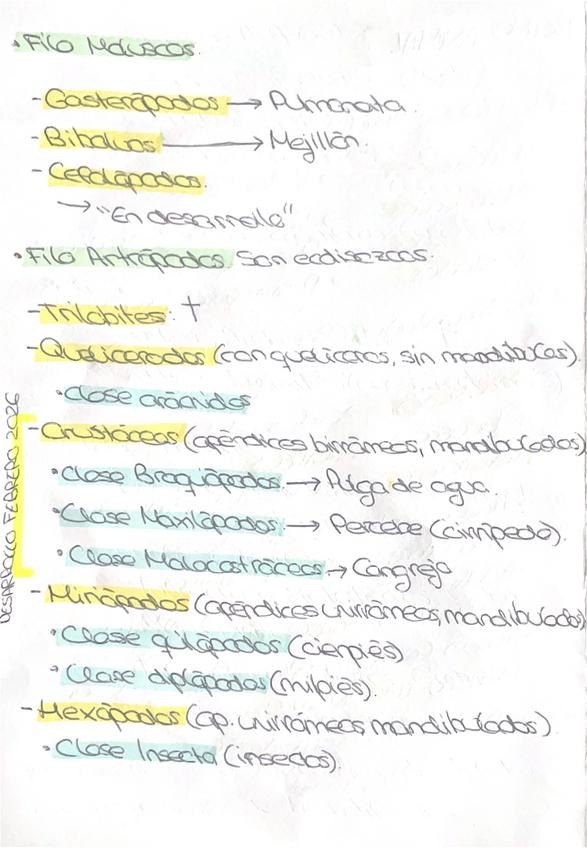 • Filo Moluscos.
- Gasterópodos → Pulmonata.
- Bibalvos → Mejillón.
- Cefalópodos.
→ "En desarrollo"
• Filo Artrópodos. Son ecdisozoos.
- Trilobites: †
- Quelicerados (con quelíceros, sin mandíbulas).
• Clase arácnidos
- Crustáceos (apéndices birrámeos, mandibulados)
• Clase Braquiópodos → Pulga de agua.
• Clase Maxilópodos → Percebe (cirrípedo).
• Clase Malacostráceos → Cangrejo
- Miriápodos (apéndices unirrámeos, mandibulados)
• Clase quilópodos (ciempiés)
• Clase diplópodos (milpiés).
- Hexápodos (ap. unirrámeos mandibulados).
• Clase Insecta (insectos).
DESARROLLO FEBRERO 2026